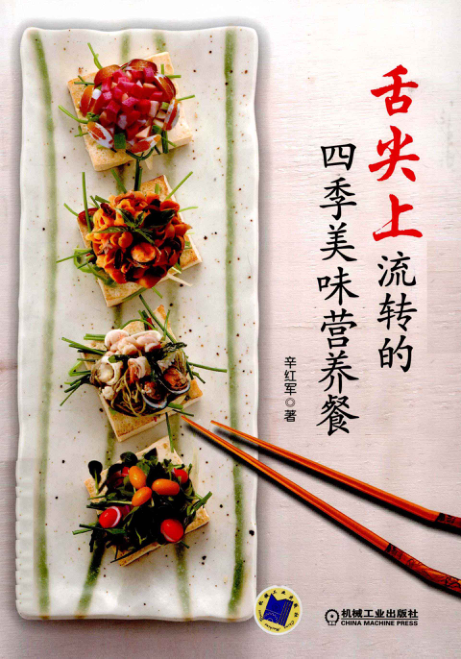 舌尖上流转的
四季美味营养餐
辛红军◎著
机械工业出版社
CHINA MACHINE PRESS